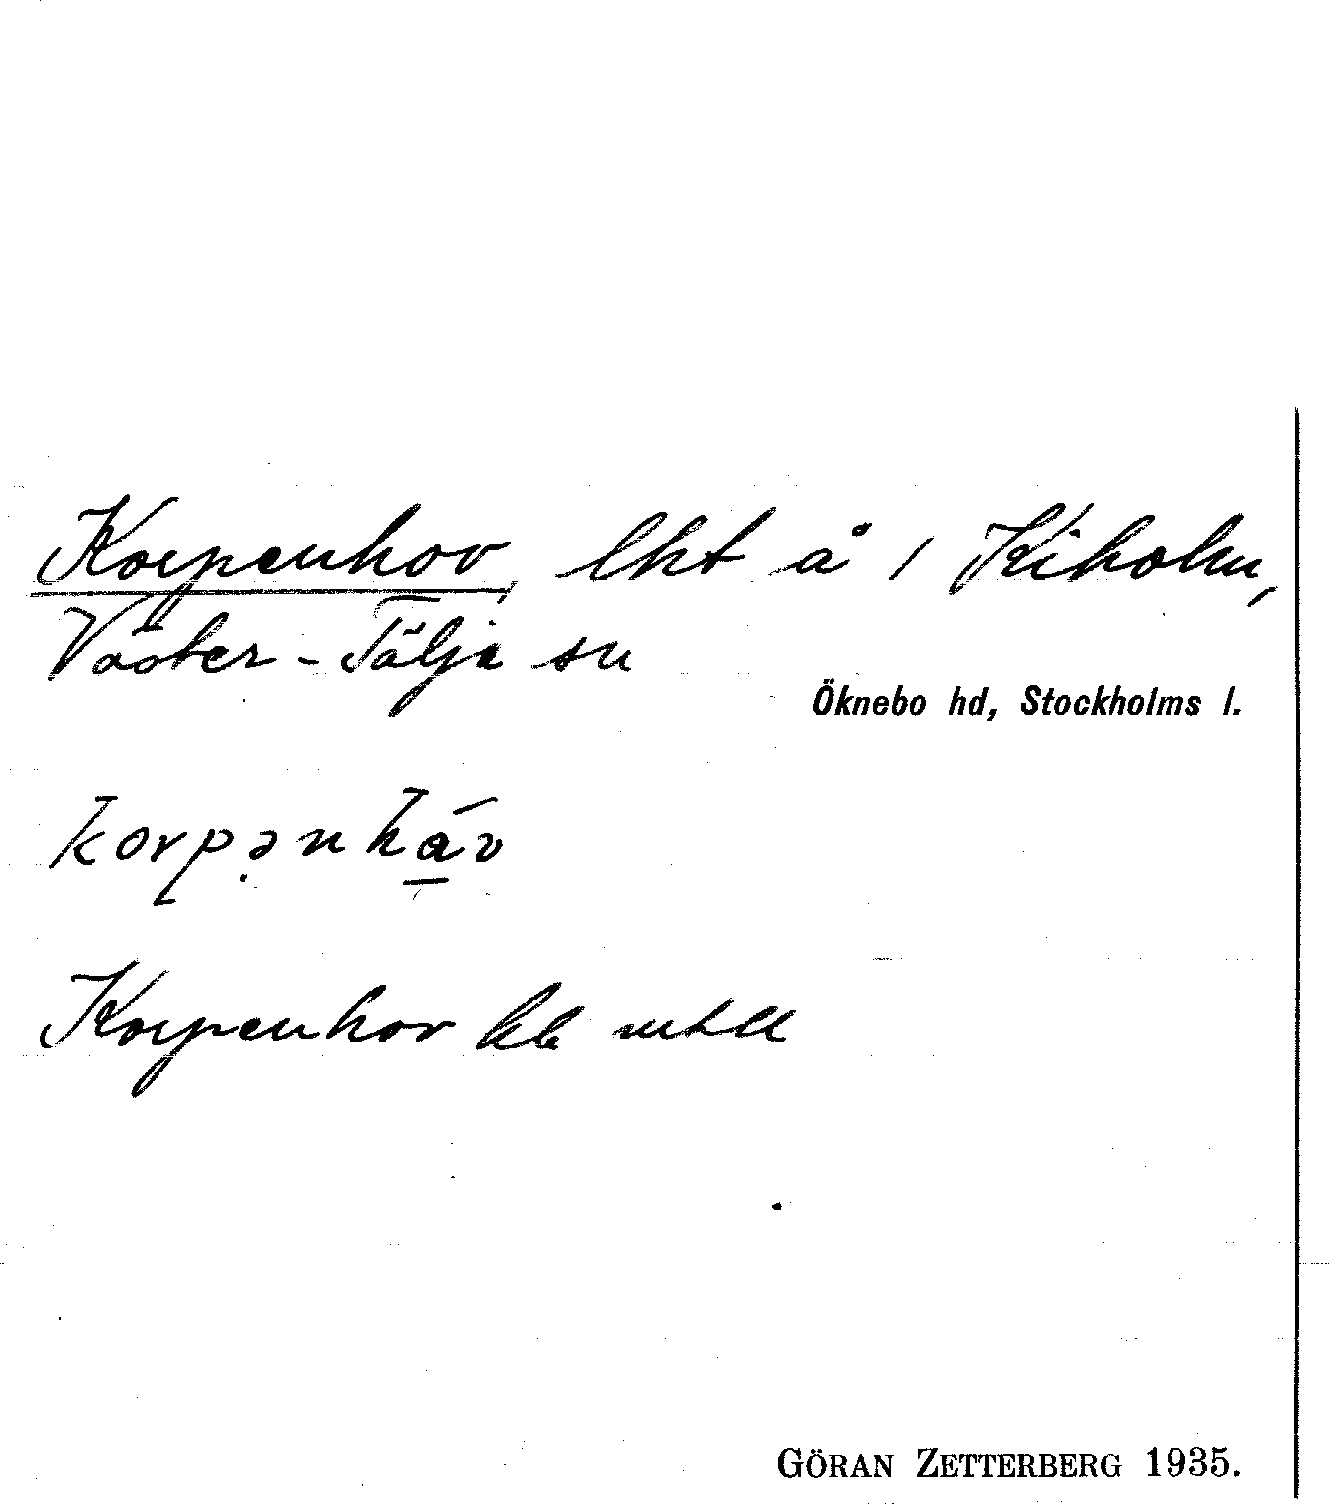 Korpenhov, lht å / Kiholm,
Väster-Tälja sn
Öknebo hd, Stockholms l.
korpənháv
Korpenhov
GÖRAN ZETTERBERG 1935.